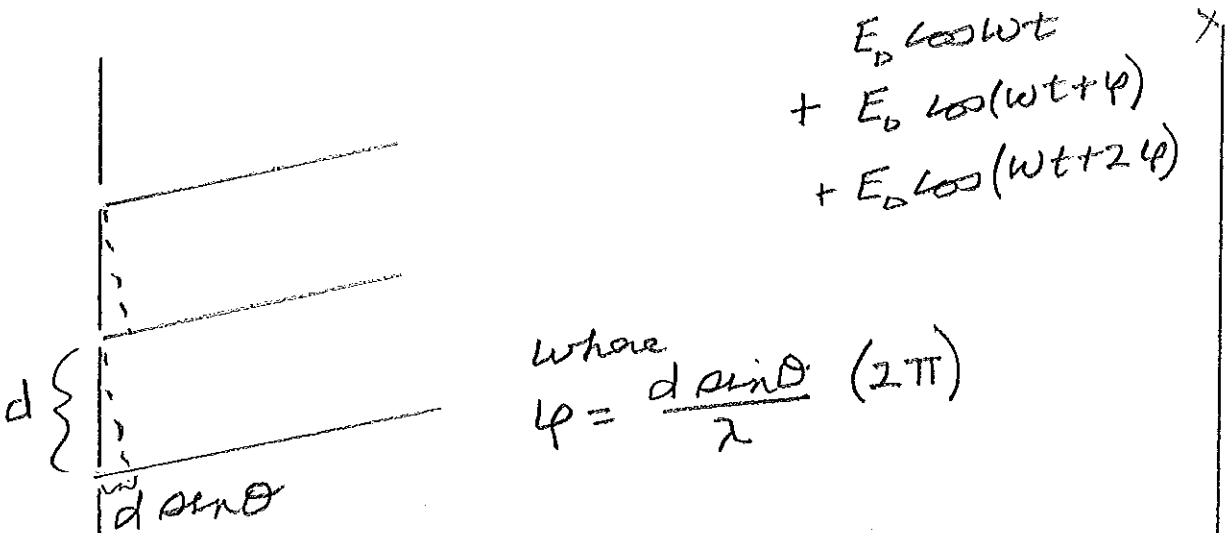 E₀ cos ωt
+ E₀ cos(ωt+φ)
+ E₀ cos(ωt+2φ)
x
d {
where
φ = d sinθ / λ (2π)
d sinθ